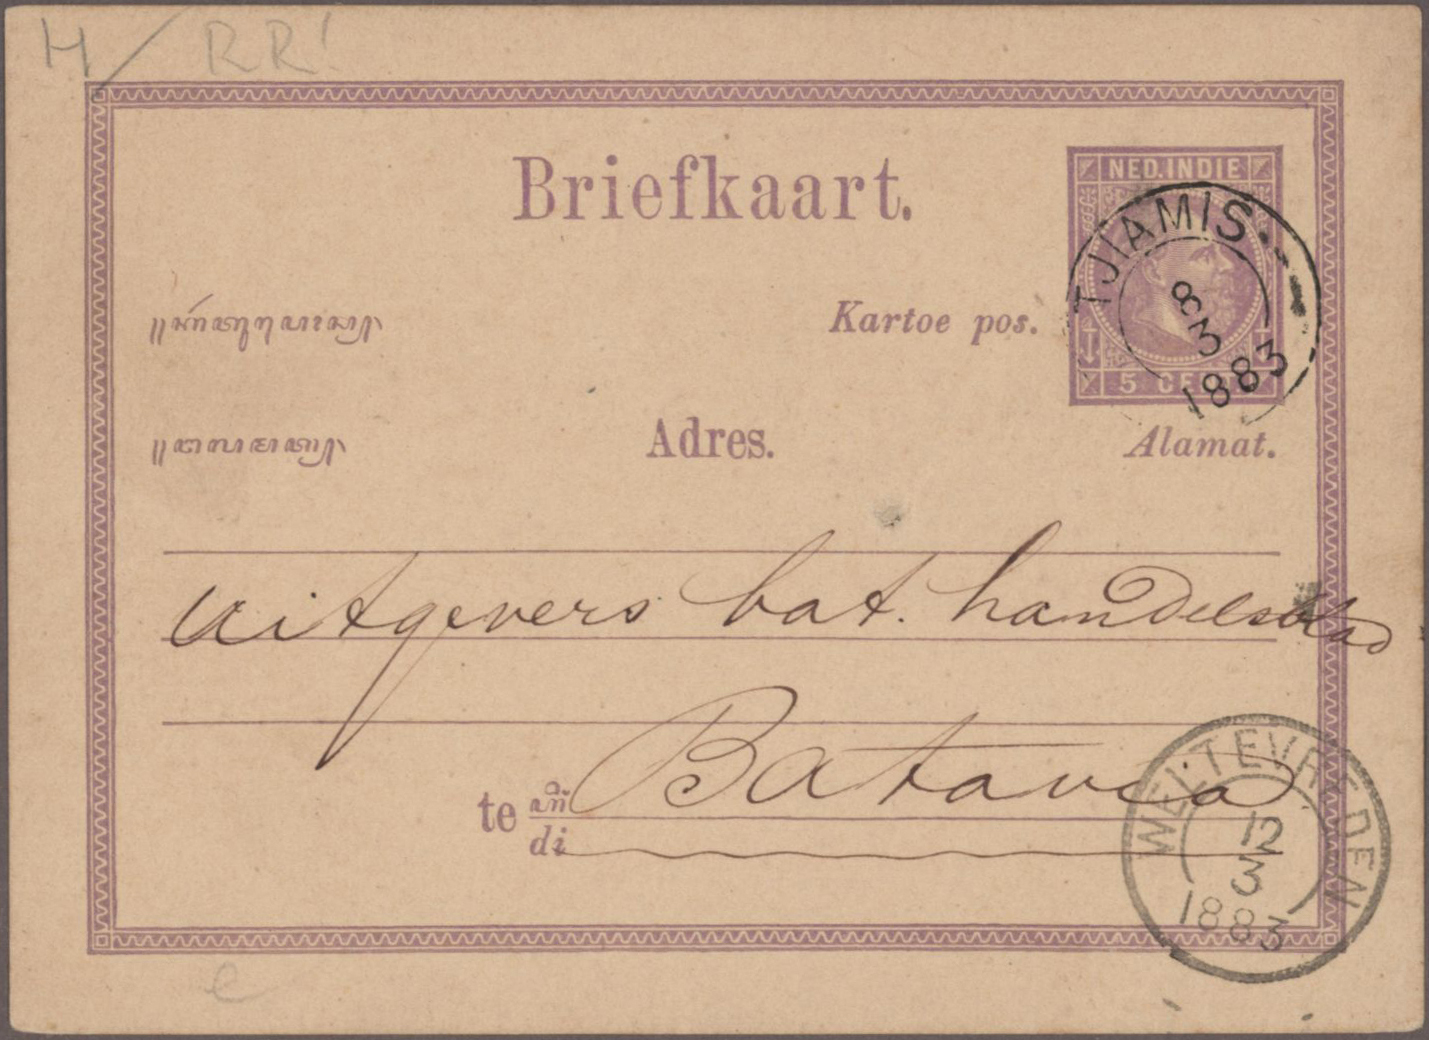 H / RR!
Briefkaart.
NED.INDIE
TJIAMIS
8
3
1883
Kartoe pos.
5 CENT
Adres.
Alamat.
uitgevers bat. handelsblad
Batavia
te
di
WELTEVREDEN
12
3
1883
e